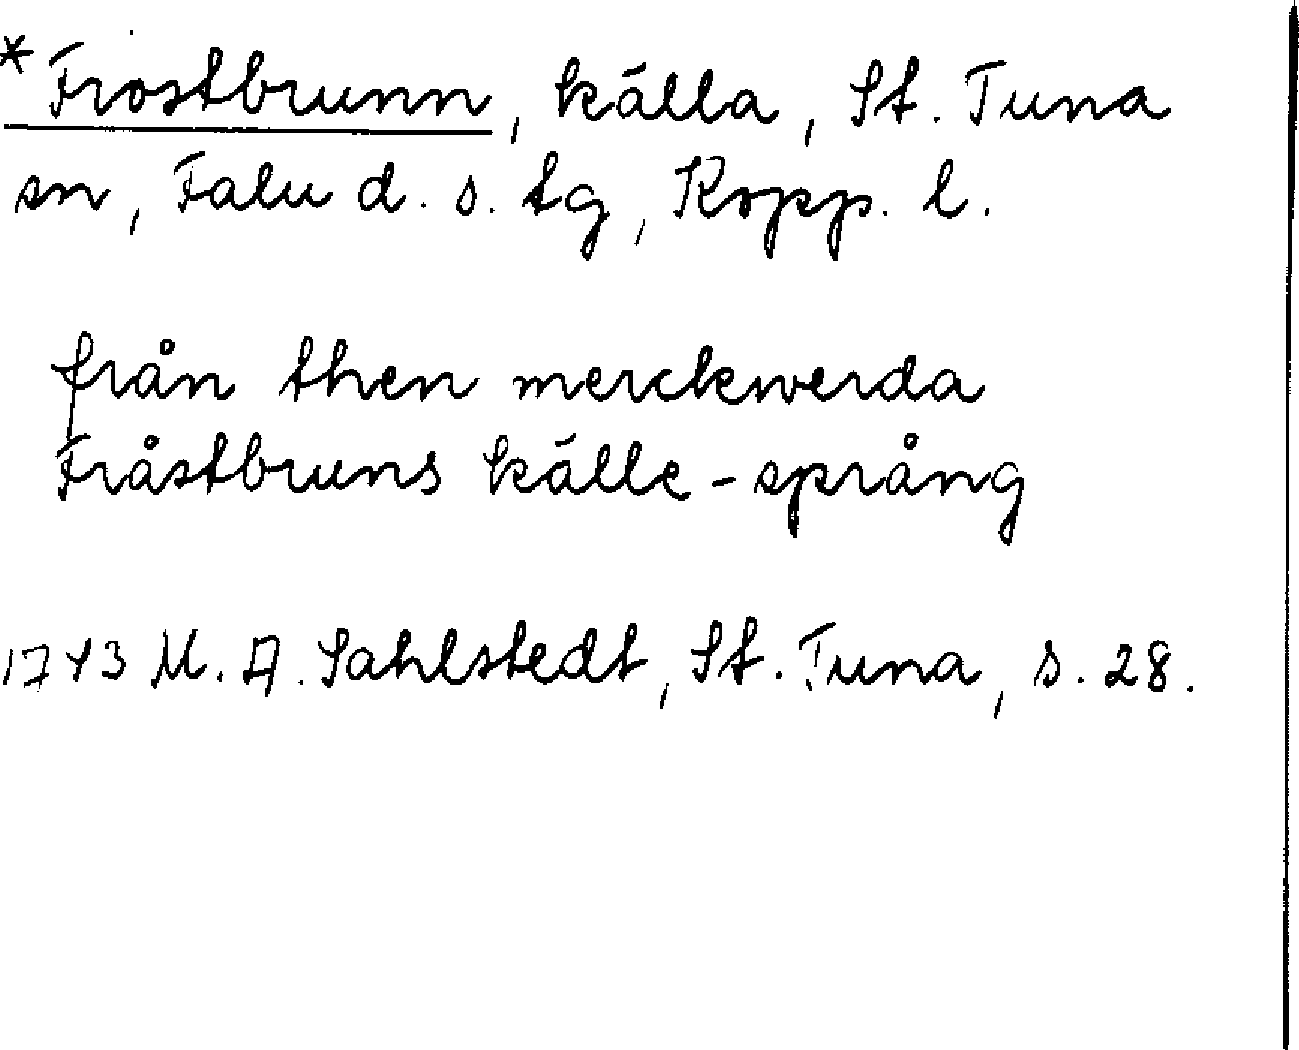 *Frostbrunn, källa, St. Tuna
sn, Falu d. s. tg, Kopp. l.
från then merckwerda
Fråstbruns källe-språng
1743 M. A. Sahlstedt, St. Tuna, s. 28.